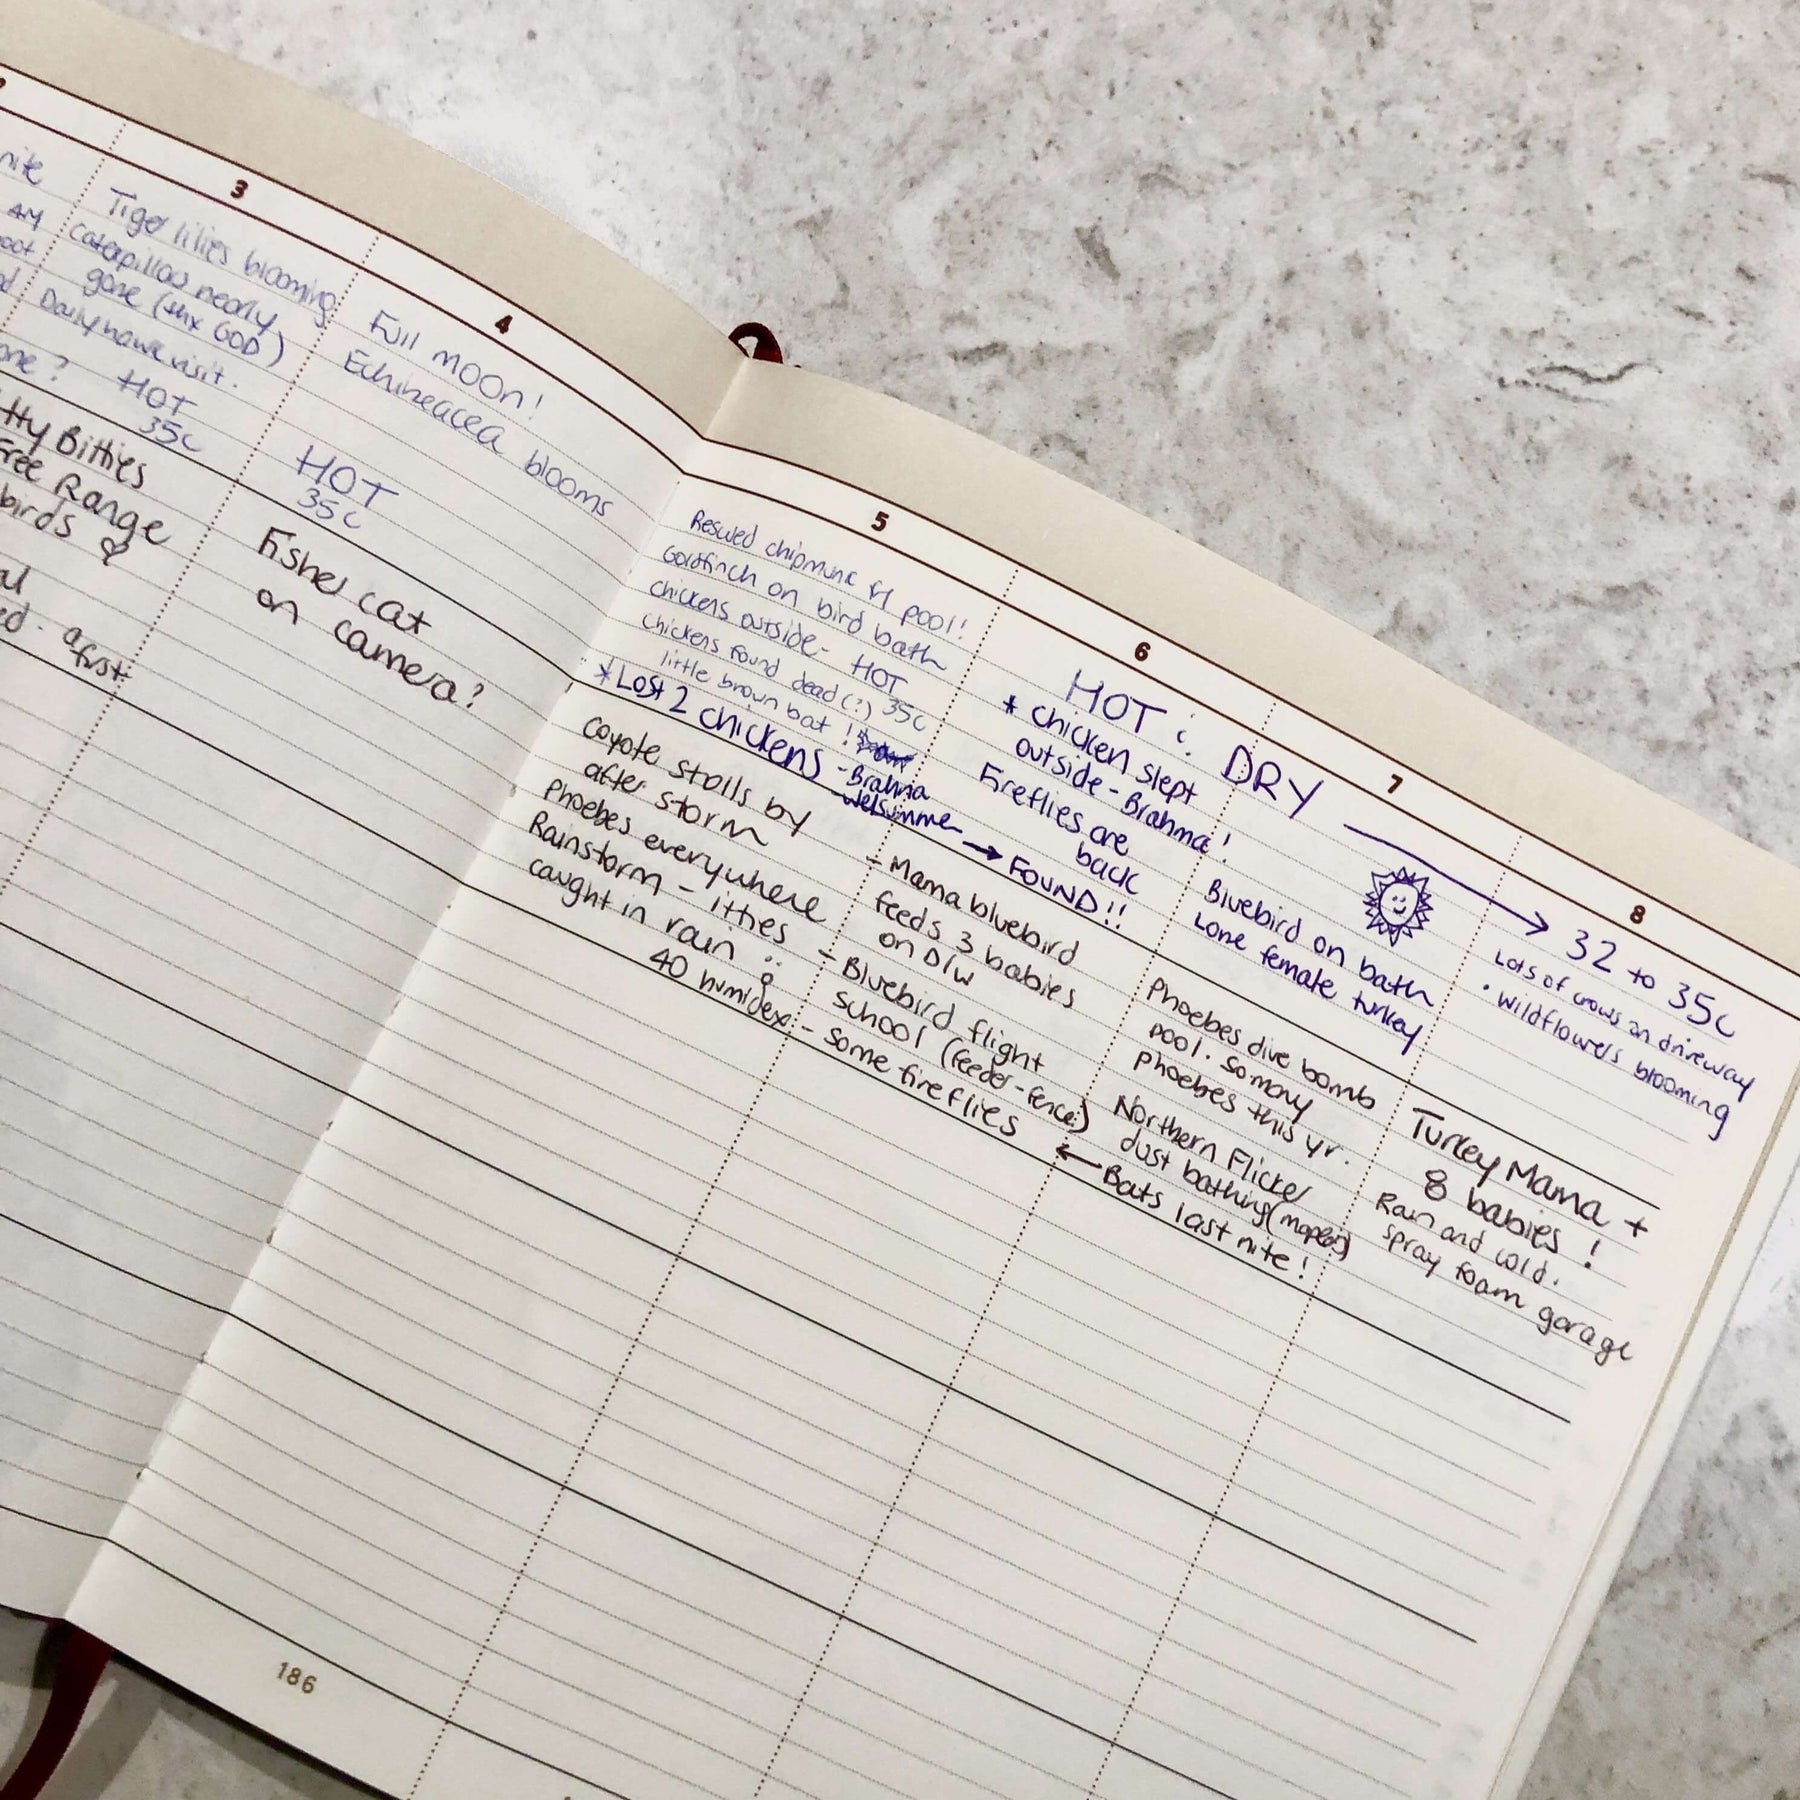 nite
AM
3
Tiger lilies blooming
Caterpillars nearly
gone (thx GOD)
Daily hawk visit.
HOT
35c
Bitties
Free Range
birds
a first
4
Full moon!
Echineacea blooms
HOT
35c
Fisher cat
on camera?
5
Rescued chipmunk pool!
Goldfinch on bird bath
chickens outside - HOT
35c
chickens found dead (?)
little brown bat!
* Lost 2 chickens
- Brahma
- Welsummer → FOUND!!
Coyote stalls by
after storm
Phoebes everywhere
Rainstorm - itties
caught in rain
40 humidex
6
HOT & DRY → 32 to 35c
* chicken slept
outside - Brahma!
Fireflies are
back
- Mama bluebird
feeds 3 babies
on D/W
- Bluebird flight
school (feeder-fence)
- Some fireflies
7
Bluebird on bath
Lone female turkey
Phoebes dive bomb
pool. So many
Phoebes this yr.
Northern Flicker
dust bathing (maples)
← Bats last nite!
8
Lots of crows on driveway
• wildflowers blooming
Turkey Mama +
8 babies!
Rain and cold.
spray foam garage
186